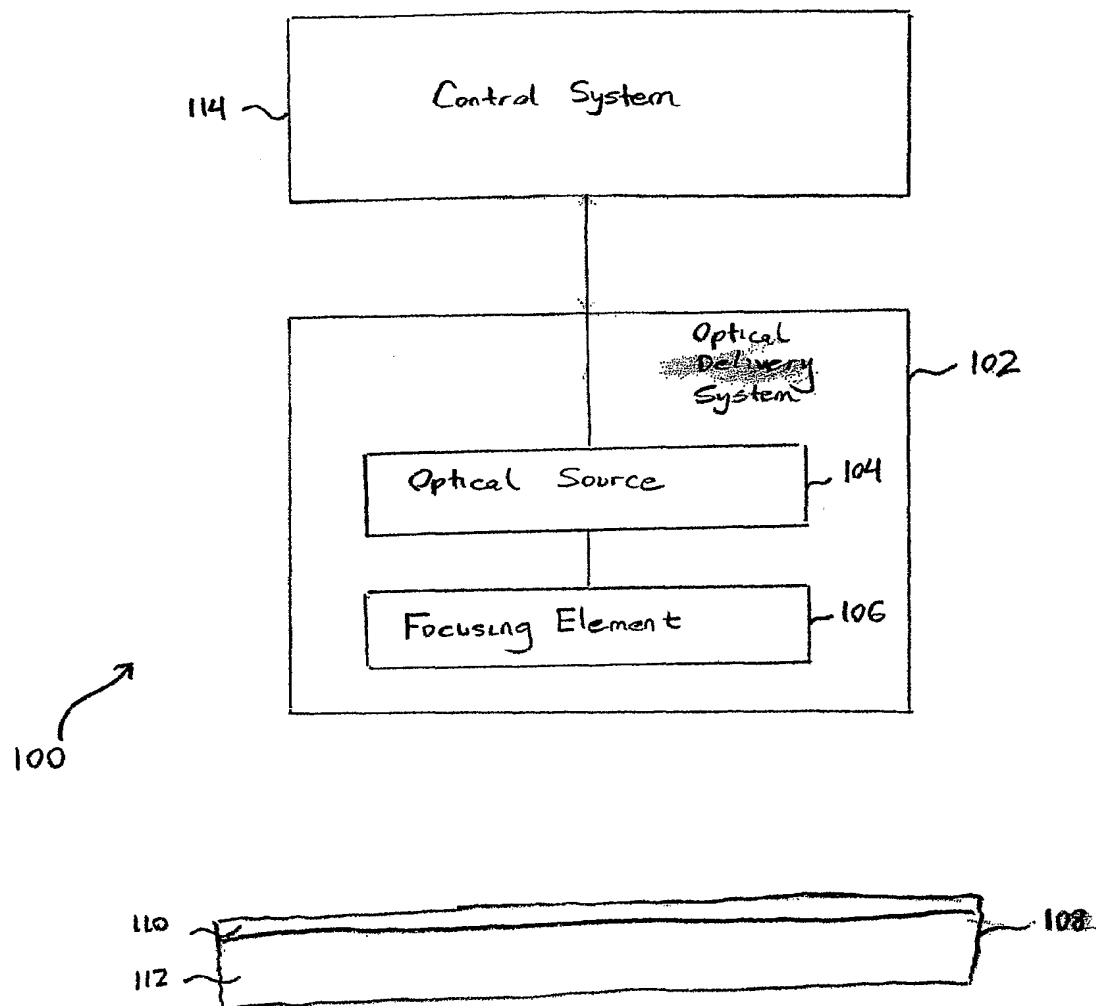 Control System
114
Optical
Delivery
System
102
Optical Source
104
Focusing Element
106
100
110
108
112